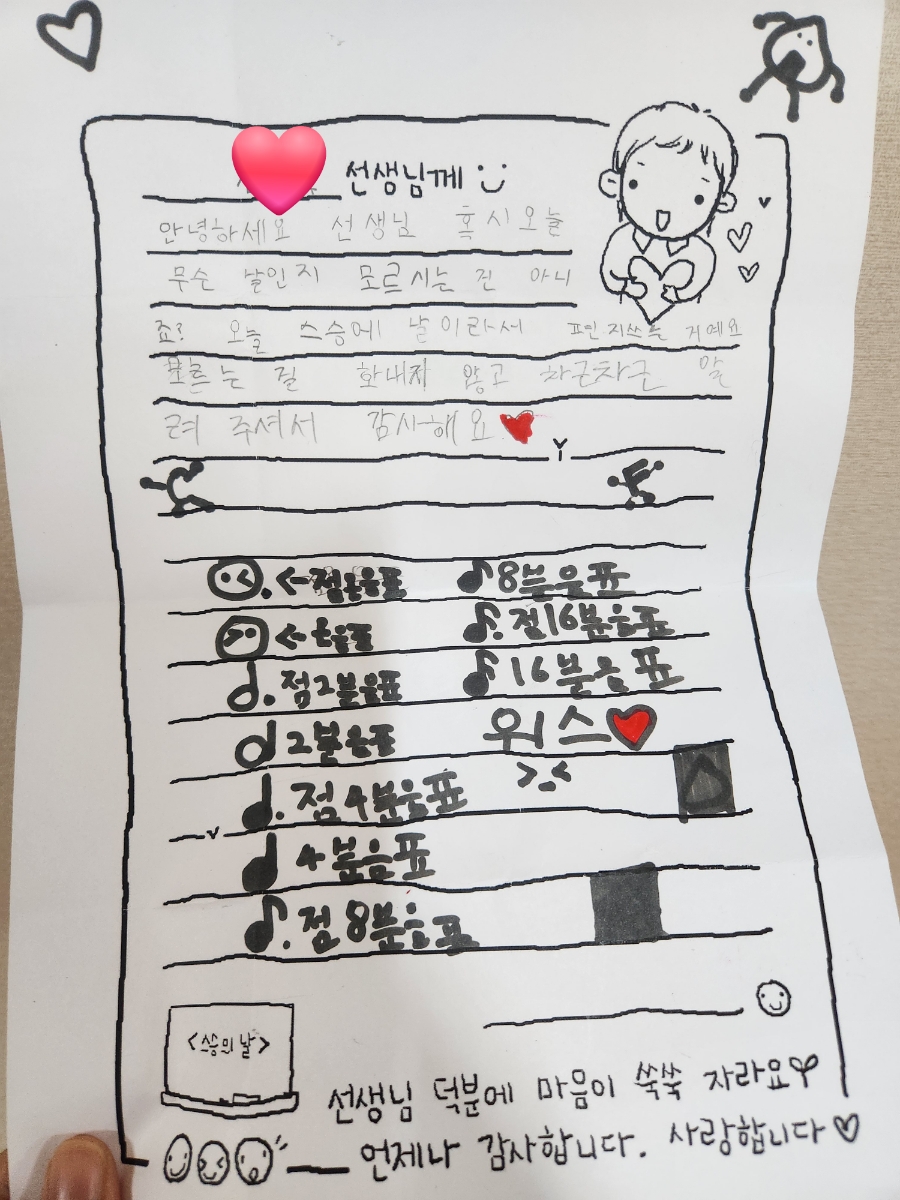 선생님께
안녕하세요 선생님 혹시오늘
무슨 날인지 모르시는 건 아니
죠? 오늘 스승에 날이라서 편인지쓰는 거예요
모르는 걸 화내지 않고 차근차근 알
려 주셔서 감사해요
<-점온음표
<-온음표
점2분음표
2분음표
점4분음표
4분음표
점8분음표
8분음표
점16분음표
16분음표
위스
>_<
<스승의 날>
선생님 덕분에 마음이 쑥쑥 자라요
언제나 감사합니다. 사랑합니다